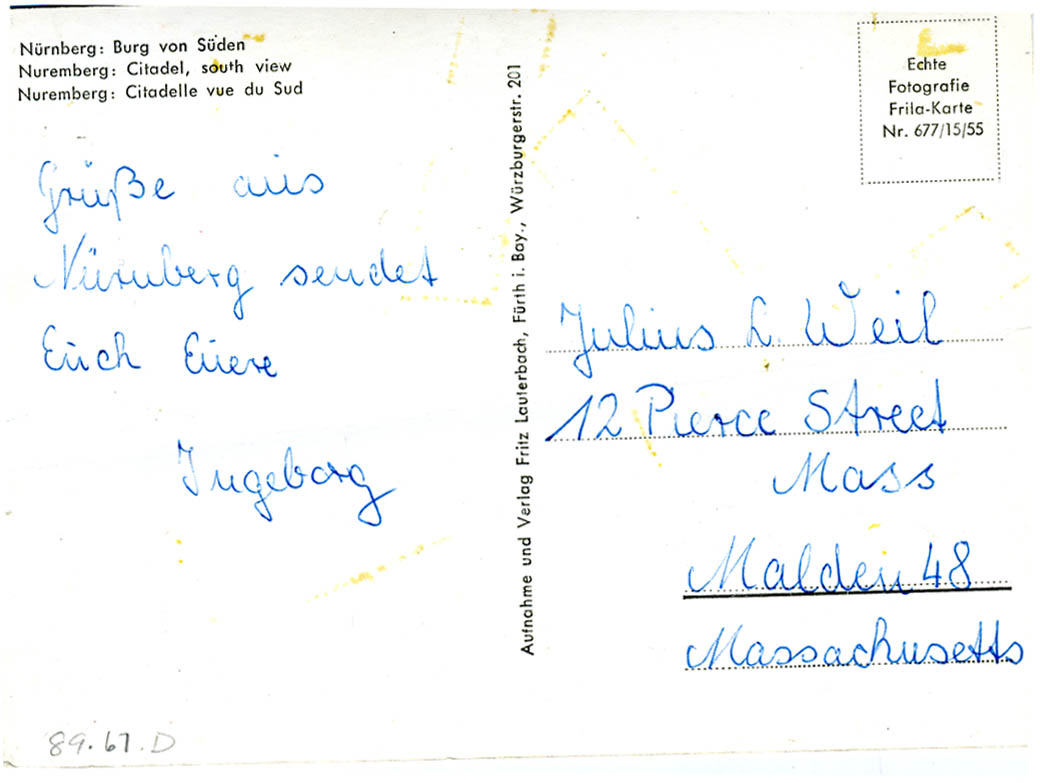 Nürnberg: Burg von Süden
Nuremberg: Citadel, south view
Nuremberg: Citadelle vue du Sud
Grüße aus
Nürnberg sendet
Euch Euere
Ingeborg
Aufnahme und Verlag Fritz Lauterbach, Fürth i. Bay., Würzburgerstr. 201
Echte
Fotografie
Frila-Karte
Nr. 677/15/55
Julius L. Weil
12 Pierce Street
Mass
Malden 48
Massachusetts
89.67.D